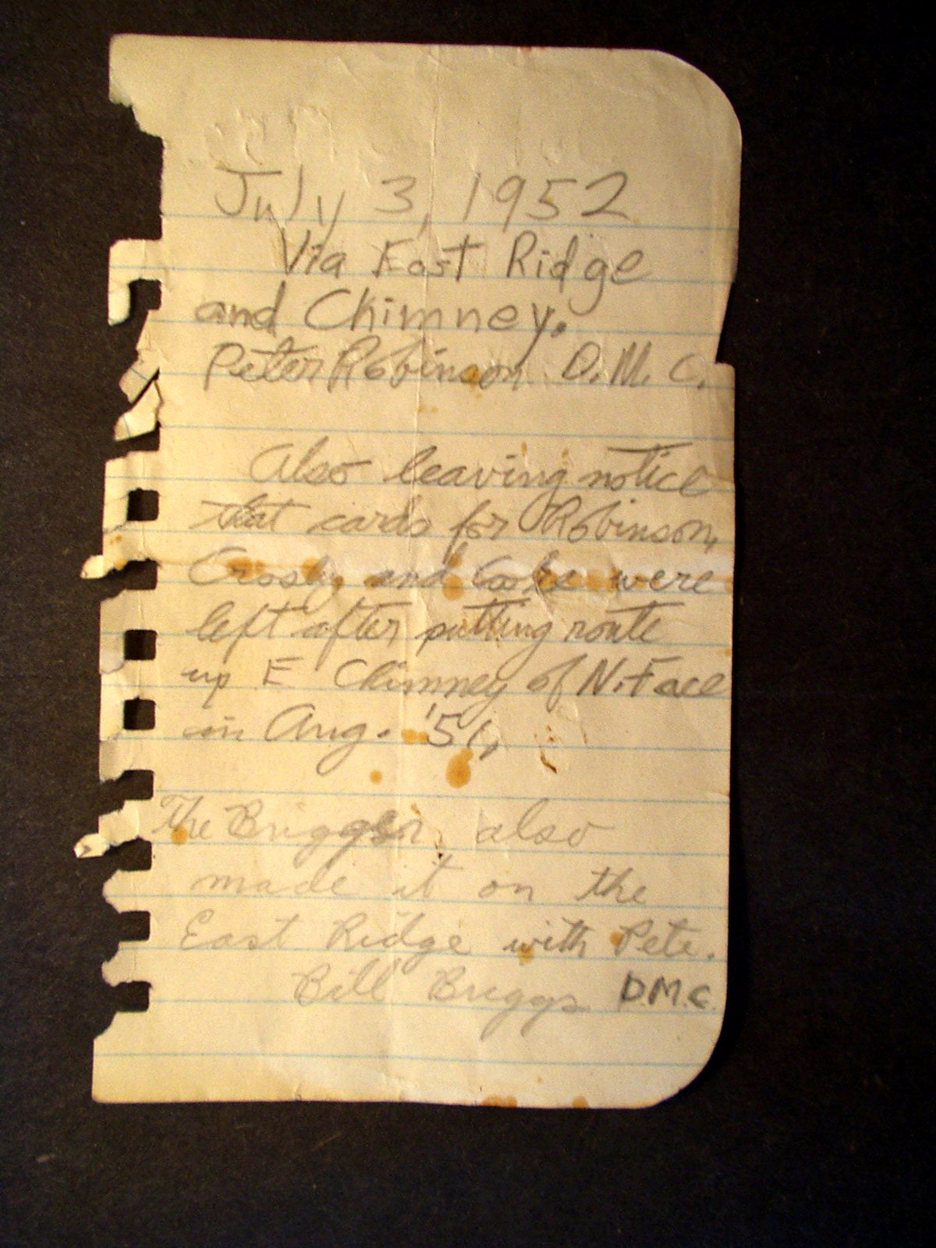 July 3, 1952
Via East Ridge
and Chimney.
Peter Robinson D.M.C.
Also leaving notice
that cards for Robinson,
Crosby and Cooke were
left after putting route
up E Chimney of N. Face
in Aug. '51,
The Brigger, also
made it on the
East Ridge with Pete.
Bill Briggs D.M.C.